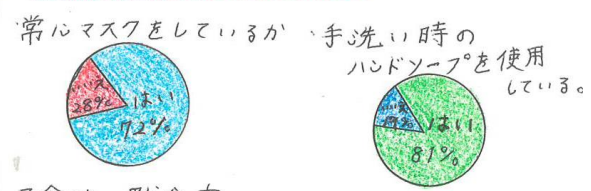 常にマスクをしているか
いいえ
28%
はい
72%
・手洗い時の
ハンドソープを使用
している。
いいえ
19%
はい
81%